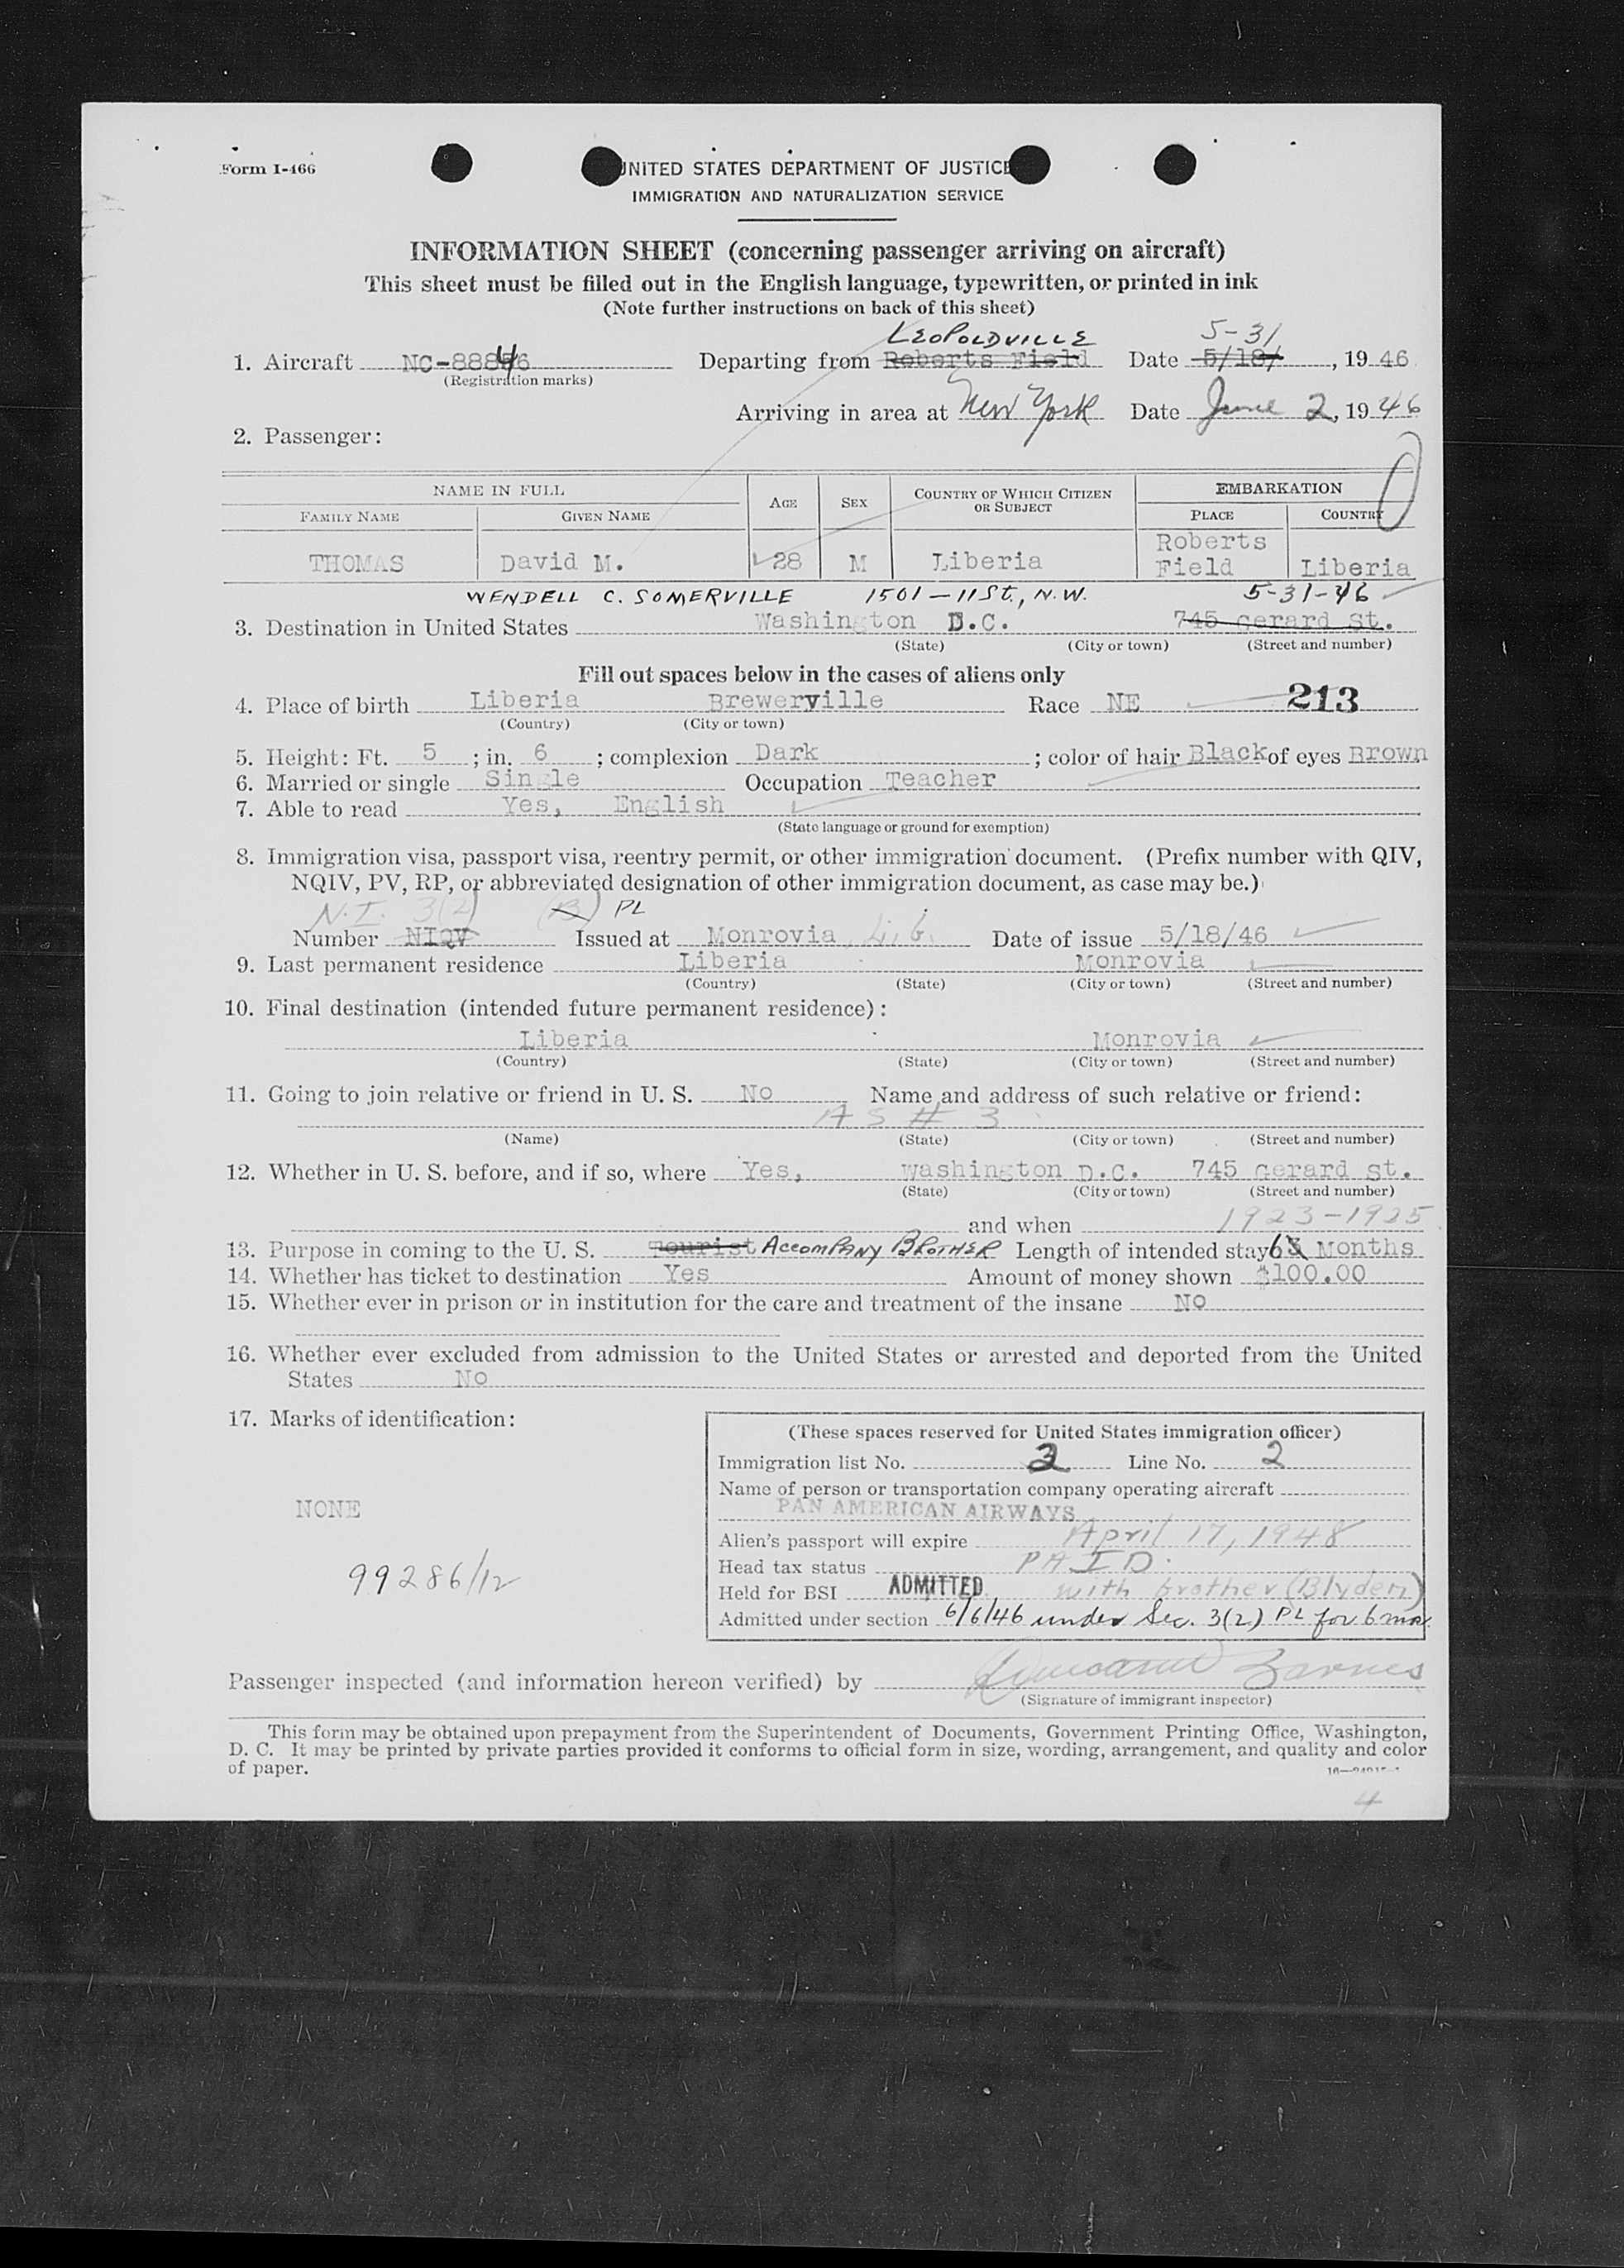 Form I-466
UNITED STATES DEPARTMENT OF JUSTICE
IMMIGRATION AND NATURALIZATION SERVICE
INFORMATION SHEET (concerning passenger arriving on aircraft)
This sheet must be filled out in the English language, typewritten, or printed in ink
(Note further instructions on back of this sheet)
LEOPOLDVILLE 5-31
1. Aircraft NC-88846 Departing from Roberts Field Date 5/18/, 19 46
(Registration marks)
Arriving in area at New York Date June 2, 19 46
2. Passenger:
NAME IN FULL AGE SEX COUNTRY OF WHICH CITIZEN OR SUBJECT EMBARKATION
FAMILY NAME GIVEN NAME PLACE COUNTRY
THOMAS David M. 28 M Liberia Roberts Field Liberia
WENDELL C. SOMERVILLE 1501-11 St., N.W. 5-31-46
3. Destination in United States Washington D.C. 745 Gerard St.
(State) (City or town) (Street and number)
Fill out spaces below in the cases of aliens only
4. Place of birth Liberia Brewerville Race NE 213
(Country) (City or town)
5. Height: Ft. 5; in. 6; complexion Dark; color of hair Black of eyes Brown
6. Married or single Single Occupation Teacher
7. Able to read Yes, English
(State language or ground for exemption)
8. Immigration visa, passport visa, reentry permit, or other immigration document. (Prefix number with QIV,
NQIV, PV, RP, or abbreviated designation of other immigration document, as case may be.)
N.I. 3(2) (B) PL
Number NIQV Issued at Monrovia, Lib. Date of issue 5/18/46
9. Last permanent residence Liberia Monrovia
(Country) (State) (City or town) (Street and number)
10. Final destination (intended future permanent residence):
Liberia Monrovia
(Country) (State) (City or town) (Street and number)
11. Going to join relative or friend in U. S. No Name and address of such relative or friend:
AS # 3
(Name) (State) (City or town) (Street and number)
12. Whether in U. S. before, and if so, where Yes, Washington D.C. 745 Gerard St.
(State) (City or town) (Street and number)
and when 1923-1925
13. Purpose in coming to the U. S. Tourist ACCOMPANY BROTHER Length of intended stay 6 Months
14. Whether has ticket to destination Yes Amount of money shown $100.00
15. Whether ever in prison or in institution for the care and treatment of the insane No
16. Whether ever excluded from admission to the United States or arrested and deported from the United
States No
17. Marks of identification:
NONE
99286/12
(These spaces reserved for United States immigration officer)
Immigration list No. 2 Line No. 2
Name of person or transportation company operating aircraft
PAN AMERICAN AIRWAYS
Alien's passport will expire April 17, 1948
Head tax status PAID.
Held for BSI ADMITTED with brother (Blyden)
Admitted under section 6/6/46 under Sec. 3(2) PL for 6 mos.
Passenger inspected (and information hereon verified) by
(Signature of immigrant inspector)
This form may be obtained upon prepayment from the Superintendent of Documents, Government Printing Office, Washington,
D. C. It may be printed by private parties provided it conforms to official form in size, wording, arrangement, and quality and color
of paper.
4